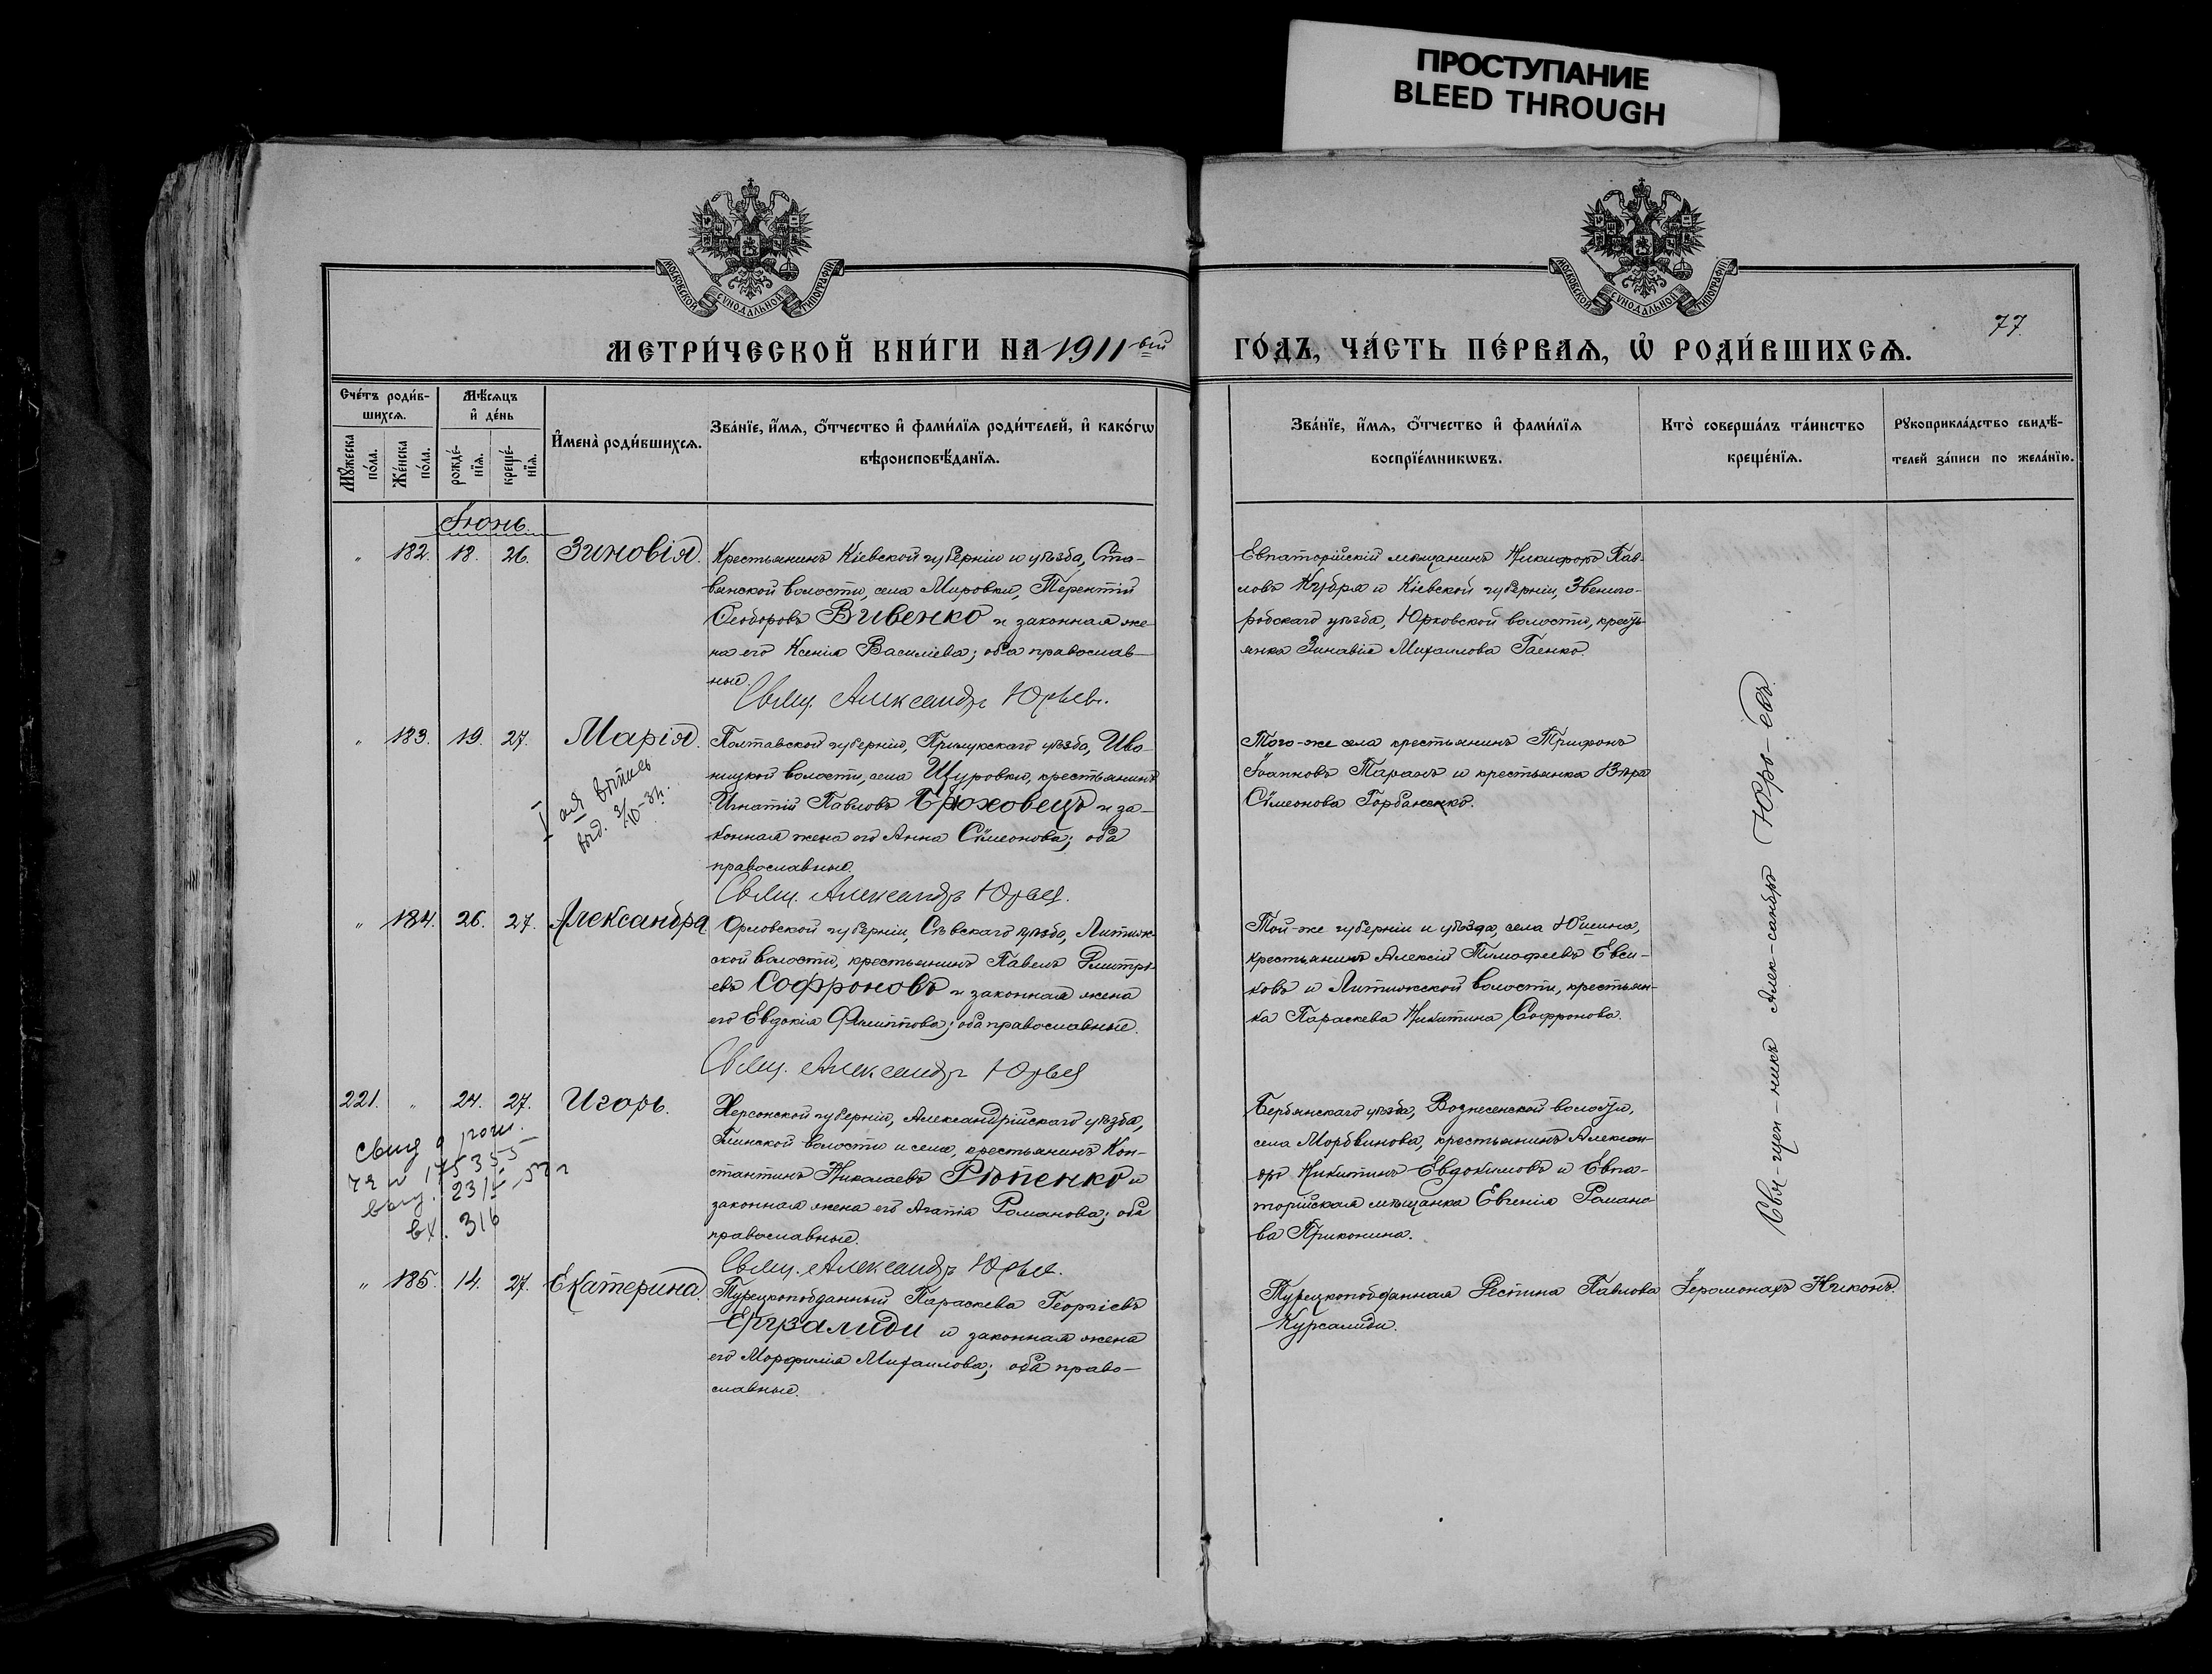 ПРОСТУПАНИЕ
BLEED THROUGH
МОСКОВСКОЙ СѴНОДАЛЬНОЙ ТИПОГРАФІИ
МОСКОВСКОЙ СѴНОДАЛЬНОЙ ТИПОГРАФІИ
77
МЕТРИ́ЧЕСКОЙ КНИ́ГИ НА 1911-ый
ГО́ДЪ, ЧА́СТЬ ПЕ́РВАѦ, Ѡ҆ РОДИ́ВШИХСѦ.
Сче́тъ роди́в-
шихсѧ.
Мꙋ́жеска по́ла.
Же́нска по́ла.
Мѣ́сѧцъ
и҆ де́нь
рожде́-нїѧ.
креще́-нїѧ.
И҆мена̀ роди́вшихсѧ.
Зва́нїе, и҆́мѧ, ѻ҆́тчество и҆ фами́лїѧ роди́телей, и҆ како́гѡ
вѣроисповѣ́данїѧ.
Зва́нїе, и҆́мѧ, ѻ҆́тчество и҆ фами́лїѧ
воспрїе́мникѡвъ.
Кто̀ соверша́лъ та́инство
креще́нїѧ.
Рꙋкоприкла́дство свидѣ́-
телей за́писи по жела́нїю.
Іюнь.
" 182. 18. 26. Зиновія.
Крестьянинъ Кіевской губерніи и уѣзда, Ста-
венской волости, села Мировки, Терентій
Ѳеодоровъ Вивенко и законная же-
на его Ксенія Василіева; оба православ-
ные.
Свящ. Александръ Юрьев.
Евпаторійскій мѣщанинъ Никифоръ Пав-
ловъ Кубря и Кіевской губерніи, Звениго-
родскаго уѣзда, Юрковской волости, кресть-
янка Зинавія Михаилова Гаенко.
" 183. 19. 27. Марія.
I ая выпись
выд. 3/10-34.
Полтавской губерніи, Прилукскаго уѣзда, Ива-
ницкой волости, села Щуровки, крестьянинъ
Игнатій Павловъ Брюховецъ и за-
конная жена его Анна Сѵмеонова; оба
православные.
Свящ. Александръ Юрьев.
Того-же села крестьянинъ Трифонъ
Іоанновъ Таранъ и крестьянка Вѣра
Сѵмеонова Горбаненко.
" 184. 26. 27. Александра
Орловской губерніи, Сѣвскаго уѣзда, Литиж-
ской волости, крестьянинъ Павелъ Дмитрі-
евъ Софроновъ и законная жена
его Евдокія Филиппова; оба православные.
Свящ. Александръ Юрьев
Той-же губерніи и уѣзда, села Юшина,
крестьянинъ Алексій Тимофеевъ Евси-
ковъ и Литижской волости, крестьян-
ка Параскева Никитина Софронова.
221. " 24. 27. Игорь.
свид о рожд.
175355
выд. 23/5-52 г
вх. 316
Херсонской губерніи, Александрійскаго уѣзда,
Глинской волости и села, крестьянинъ Кон-
стантинъ Николаевъ Рѣпенко и
законная жена его Агапія Романова; оба
православные.
Свящ. Александръ Юрьев.
Бердянскаго уѣзда, Вознесенской волости,
села Мордвинова, крестьянинъ Алексан-
дръ Никитинъ Евдокимовъ и Евпа-
торійская мѣщанка Евгенія Романо-
ва Приконина.
Свя-щен-никъ Алек-сандръ Юрь-евъ.
" 185. 14. 27. Екатерина.
Турецкоподданный Параскева Георгіевъ
Ергзалиди и законная жена
его Морфилія Михаилова; оба право-
славные.
Турецкоподданная Деспина Павлова
Курсалиди.
Іеромонахъ Никонъ.